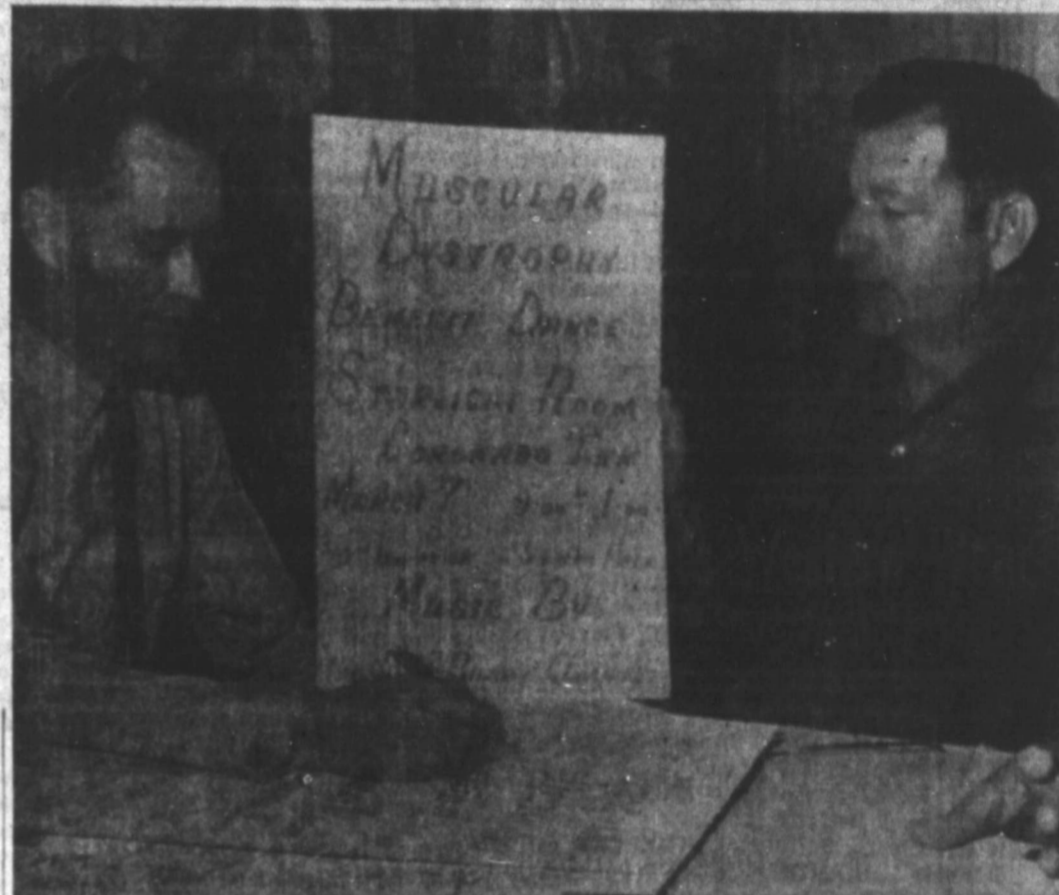 MUSCULAR
DYSTROPHY
BENEFIT DANCE
STARLIGHT ROOM
CORONADO INN
MARCH 7 9 PM - 1 AM
MUSIC BY